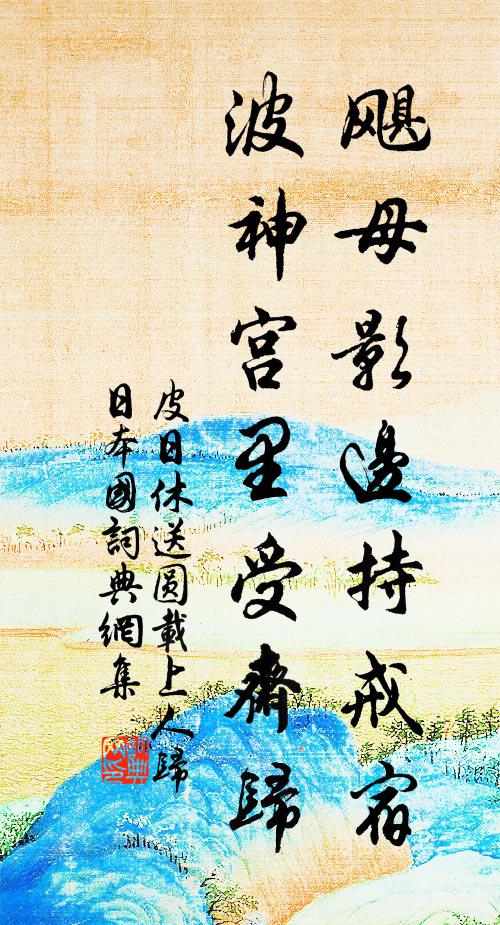 飓母影邊持戒宿
波神宫里受齋歸
皮日休送圆載上人歸
日本國詞典網集